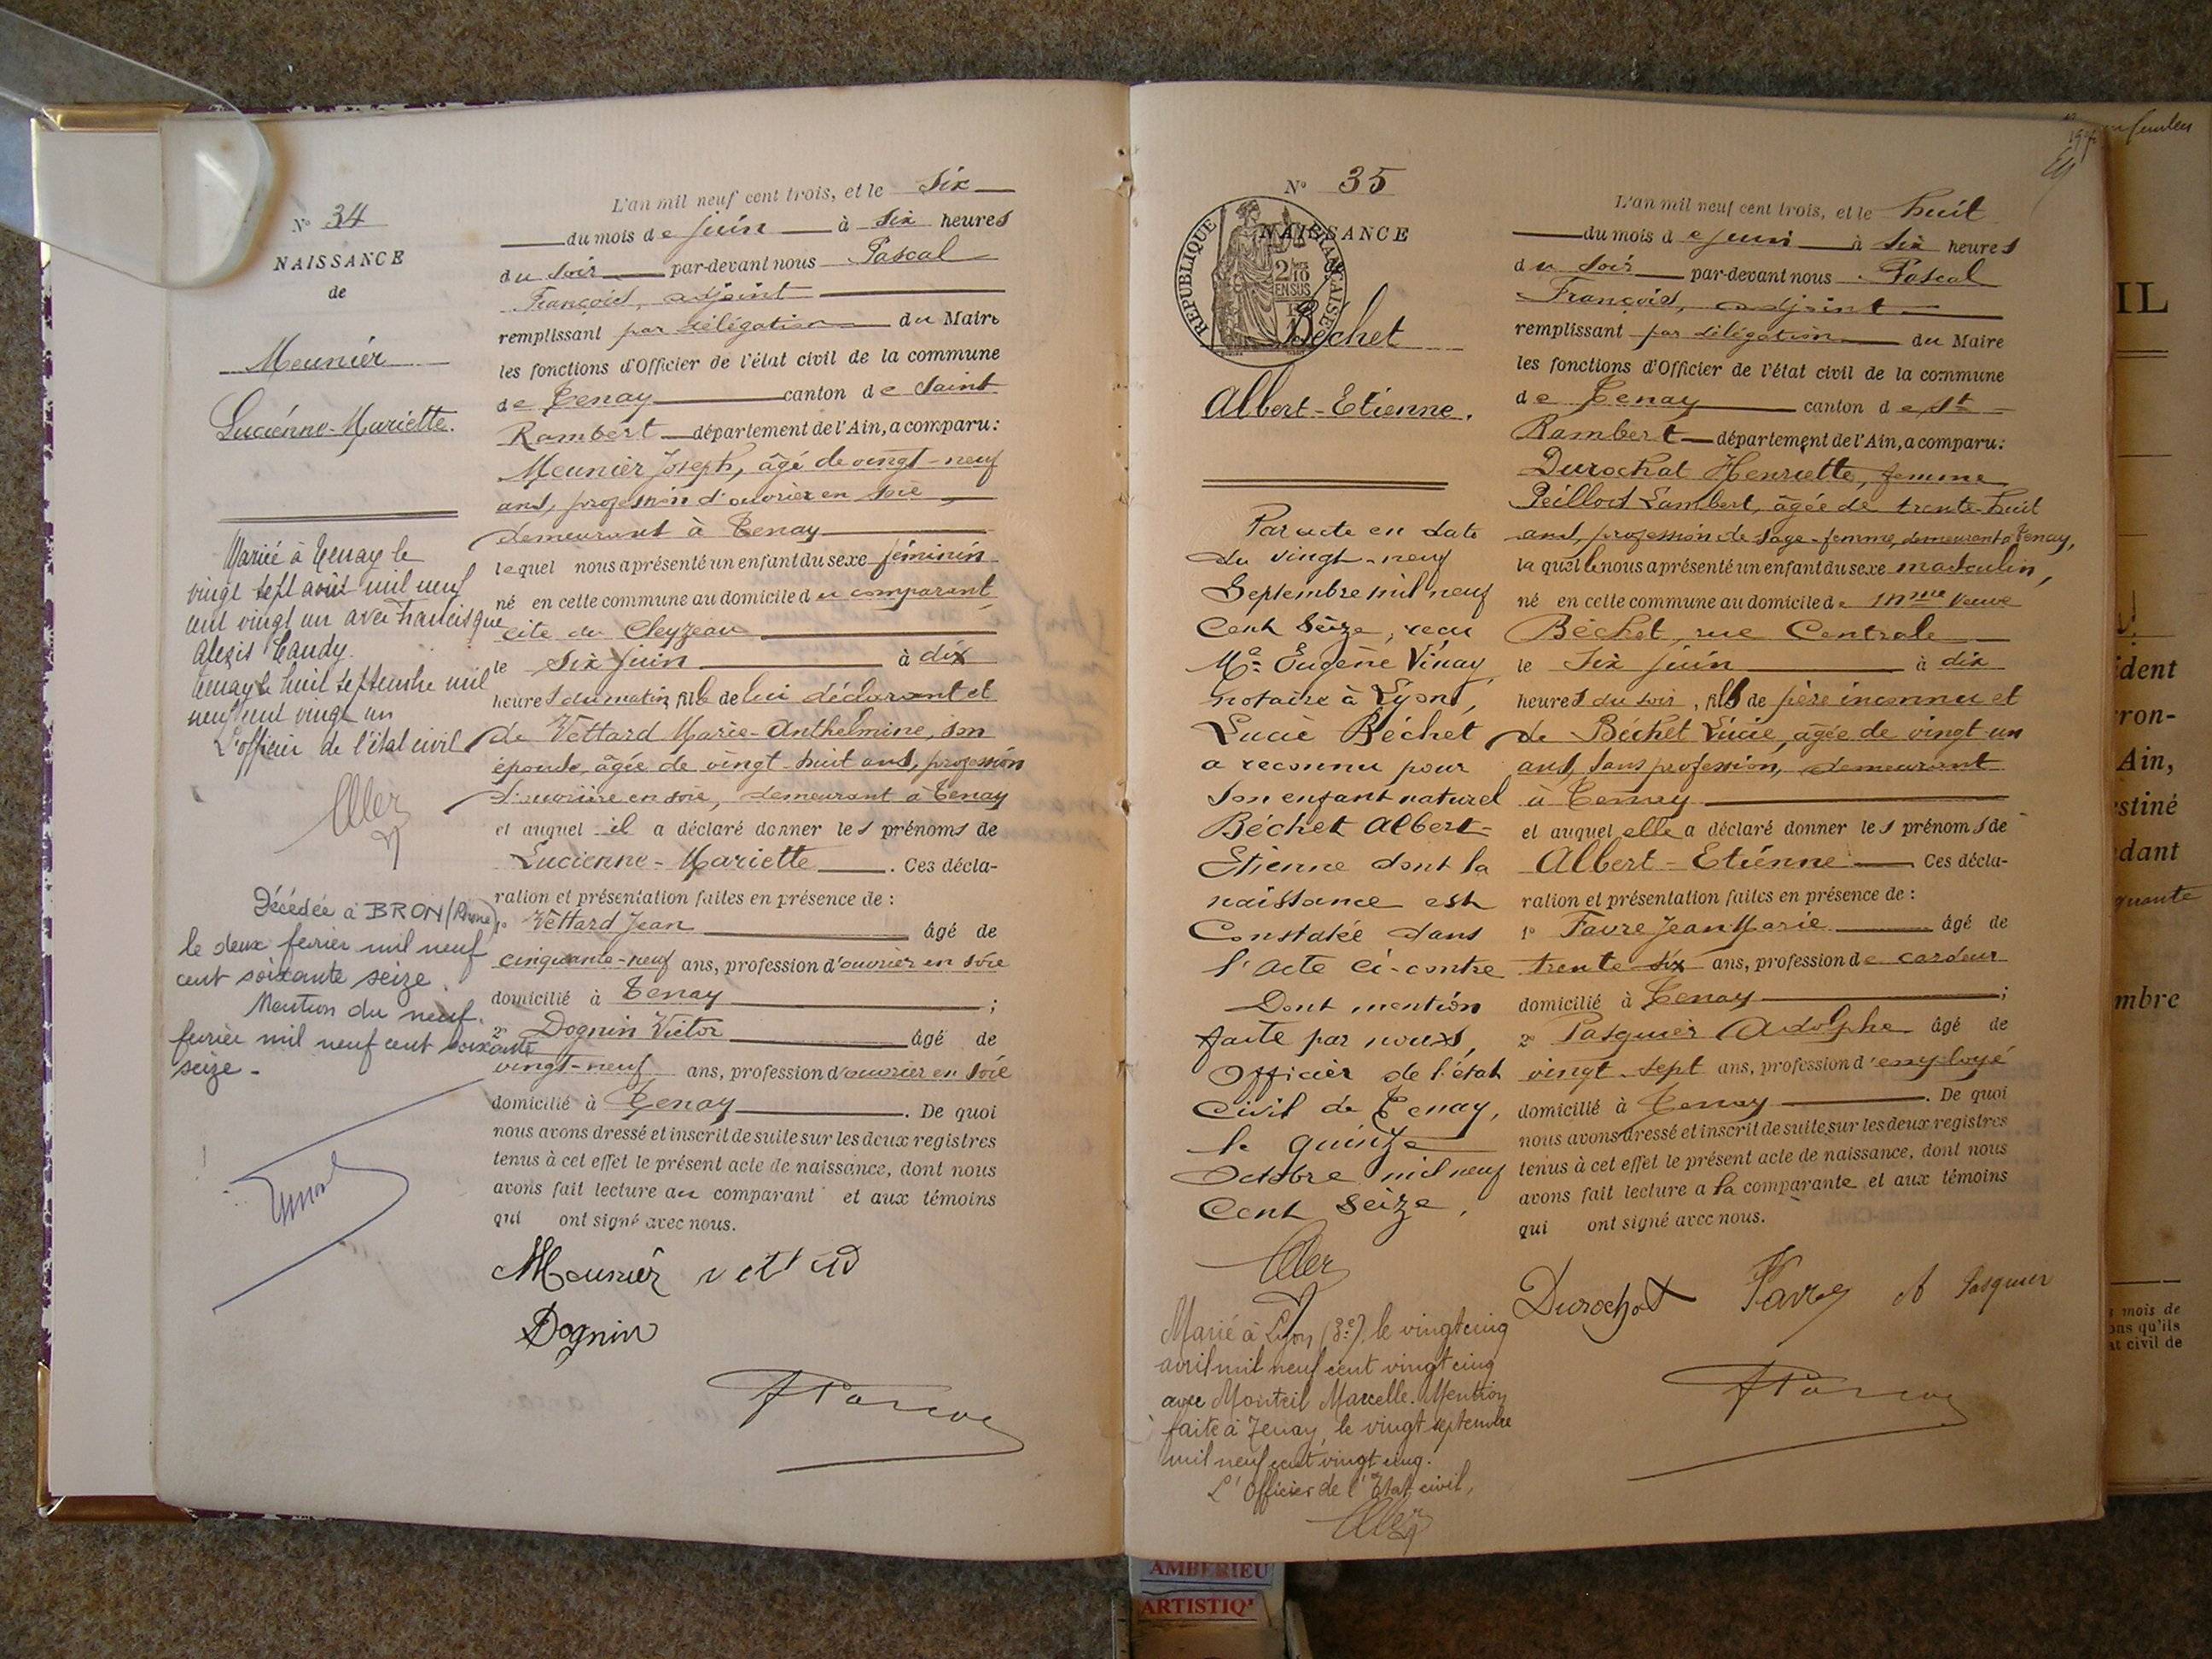 N° 34
NAISSANCE
de
Meunier
Lucienne-Mariette.
Mariée à Tenay le
vingt sept août mil neuf
cent vingt un avec Francisque
Alexis Caudy.
Tenay le huit septembre mil
neuf cent vingt un
L'officier de l'état civil
Décédée à BRON (Rhône)
le deux février mil neuf
cent soixante seize.
Mention du neuf
février mil neuf cent soixante
seize -
L'an mil neuf cent trois, et le Six
du mois de juin à six heures
du soir par-devant nous Pascal
François, adjoint
remplissant par délégation du Maire
les fonctions d'Officier de l'état civil de la commune
de Tenay canton de Saint
Rambert département de l'Ain, a comparu:
Meunier Joseph, âgé de vingt-neuf
ans, profession d'ouvrier en soie,
demeurant à Tenay
lequel nous a présenté un enfant du sexe féminin
né en cette commune au domicile du comparant
cité du Cleyzeau
le six juin à dix
heures du matin, fille de lui déclarant et
de Vettard Marie-Anthelmine, son
épouse, âgée de vingt-huit ans, profession
d'ouvrière en soie, demeurant à Tenay
et auquel il a déclaré donner les prénoms de
Lucienne-Mariette. Ces décla-
ration et présentation faites en présence de :
1° Vettard Jean âgé de
cinquante-neuf ans, profession d'ouvrier en soie
domicilié à Tenay ;
2° Dognin Victor âgé de
vingt-neuf ans, profession d'ouvrier en soie
domicilié à Tenay. De quoi
nous avons dressé et inscrit de suite sur les deux registres
tenus à cet effet le présent acte de naissance, dont nous
avons fait lecture au comparant et aux témoins
qui ont signé avec nous.
Meunier vettard
Dognin
N° 35
NAISSANCE
REPUBLIQUE FRANÇAISE
2/10
EN SUS
Béchet
Albert-Etienne.
Par acte en date
du vingt-neuf
Septembre mil neuf
Cent Seize, reçu
Me Eugène Vinay,
notaire à Lyon,
Lucie Béchet
a reconnu pour
son enfant naturel
Béchet Albert-
Etienne dont la
naissance est
Constatée dans
l'acte ci-contre
Dont mention
faite par nous,
Officier de l'état
Civil de Tenay,
le quinze
Octobre mil neuf
Cent Seize.
Marié à Lyon (3e), le vingt cinq
avril mil neuf cent vingt cinq
avec Monteil Marcelle. Mention
faite à Tenay, le vingt septembre
mil neuf cent vingt cinq.
L'Officier de l'Etat civil,
L'an mil neuf cent trois, et le huit
du mois de juin à six heures
du soir par-devant nous Pascal
François, adjoint
remplissant par délégation du Maire
les fonctions d'Officier de l'état civil de la commune
de Tenay canton de St
Rambert département de l'Ain, a comparu:
Durochat Henriette, femme
Peillod Lambert, âgée de trente-huit
ans, profession de sage-femme, demeurant à Tenay,
laquelle nous a présenté un enfant du sexe masculin,
né en cette commune au domicile de Mme Veuve
Béchet, rue Centrale
le six juin à dix
heures du soir, fils de père inconnu et
de Béchet Lucie, âgée de vingt-un
ans, sans profession, demeurant
à Tenay
et auquel elle a déclaré donner les prénoms de
Albert-Etienne Ces décla-
ration et présentation faites en présence de :
1° Favre Jean Marie âgé de
trente six ans, profession de cardeur
domicilié à Tenay ;
2° Pasquier Adolphe âgé de
vingt-sept ans, profession d'employé
domicilié à Tenay. De quoi
nous avons dressé et inscrit de suite sur les deux registres
tenus à cet effet le présent acte de naissance, dont nous
avons fait lecture à la comparante et aux témoins
qui ont signé avec nous.
Durochat Favre A Pasquier
IL
dent
ron-
Ain,
stiné
dant
mbre
mois de
ons qu'ils
at civil de
AMBERIEU
ARTISTIQ